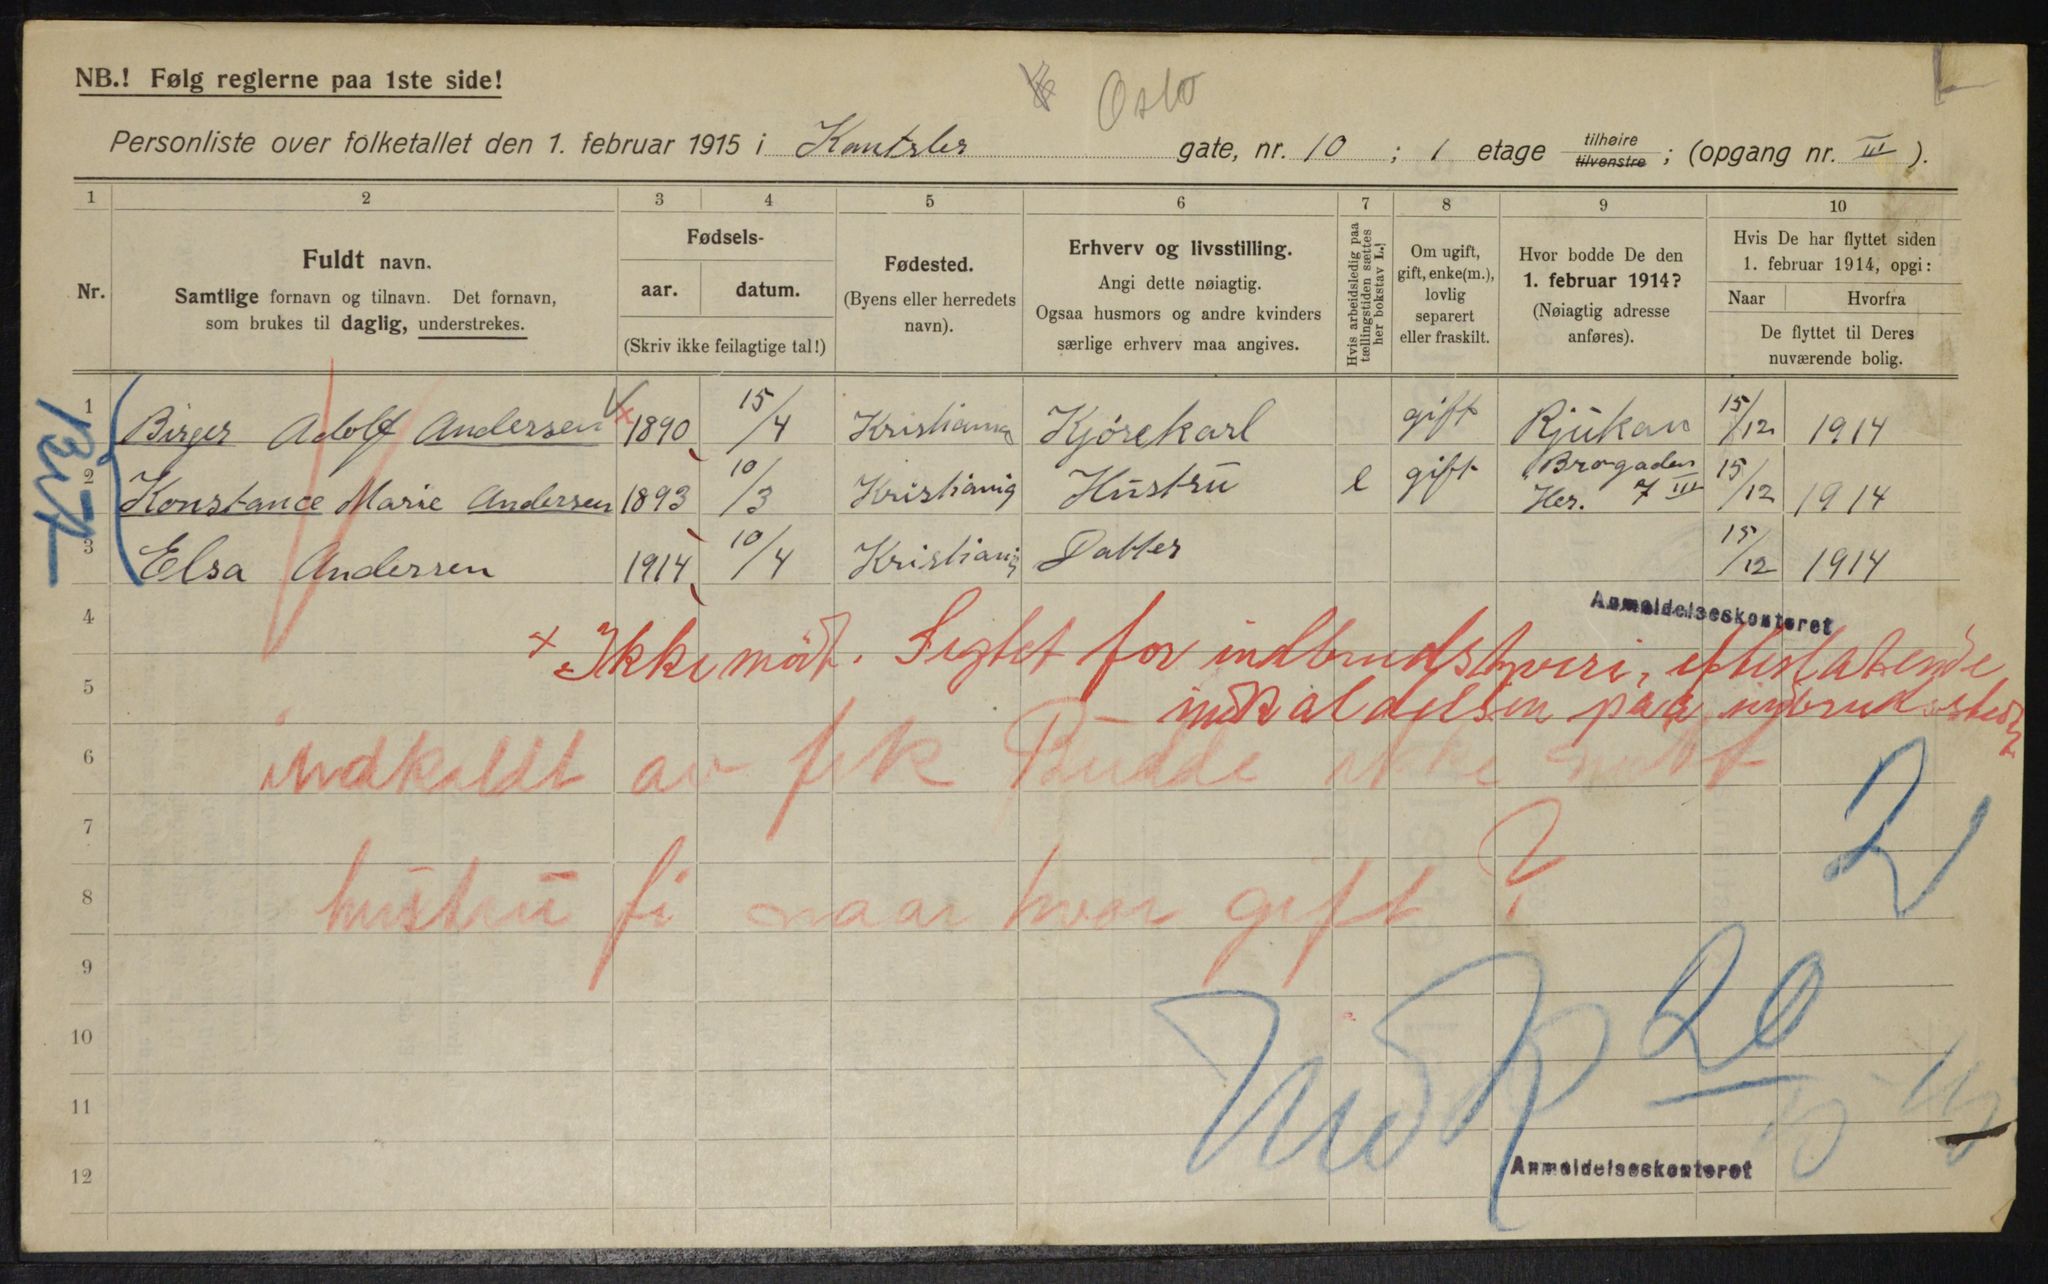 NB.! Følg reglerne paa 1ste side!
Oslo
Personliste over folketallet den 1. februar 1915 i Kantsler gate, nr. 10 ; 1 etage tilhøire tilvenstre ; (opgang nr. III ).
1 2 3 4 5 6 7 8 9 10
Nr.
Fuldt navn.
Samtlige fornavn og tilnavn. Det fornavn,
som brukes til daglig, understrekes.
Fødsels-
aar. datum.
(Skriv ikke feilagtige tal!)
Fødested.
(Byens eller herredets
navn).
Erhverv og livsstilling.
Angi dette nøiagtig.
Ogsaa husmors og andre kvinders
særlige erhverv maa angives.
Hvis arbeidsledig paa
tællingstiden sættes
her bokstav L.!
Om ugift,
gift, enke(m.),
lovlig
separert
eller fraskilt.
Hvor bodde De den
1. februar 1914?
(Nøiagtig adresse
anføres).
Hvis De har flyttet siden
1. februar 1914, opgi:
Naar Hvorfra
De flyttet til Deres
nuværende bolig.
1 Birger Adolf Andersen 1890 15/4 Kristiania Kjørekarl gift Rjukan 15/12 1914
2 Konstance Marie Andersen 1893 10/3 Kristiania Hustru l gift Brogaden Her. 7 III 15/12 1914
3 Elsa Andersen 1914 10/4 Kristiania Datter 15/12 1914
Anmeldelseskontoret
4
× Ikke mødt. Sigtet for indbrudstyveri, efterlatende
5
indkaldelsen paa indbrudsstedet
6 indkaldt av frk Budde ikke mødt
7
8 hustru fi naar hvor gift ?
2
9
10
20
11
12
Anmeldelseskontoret